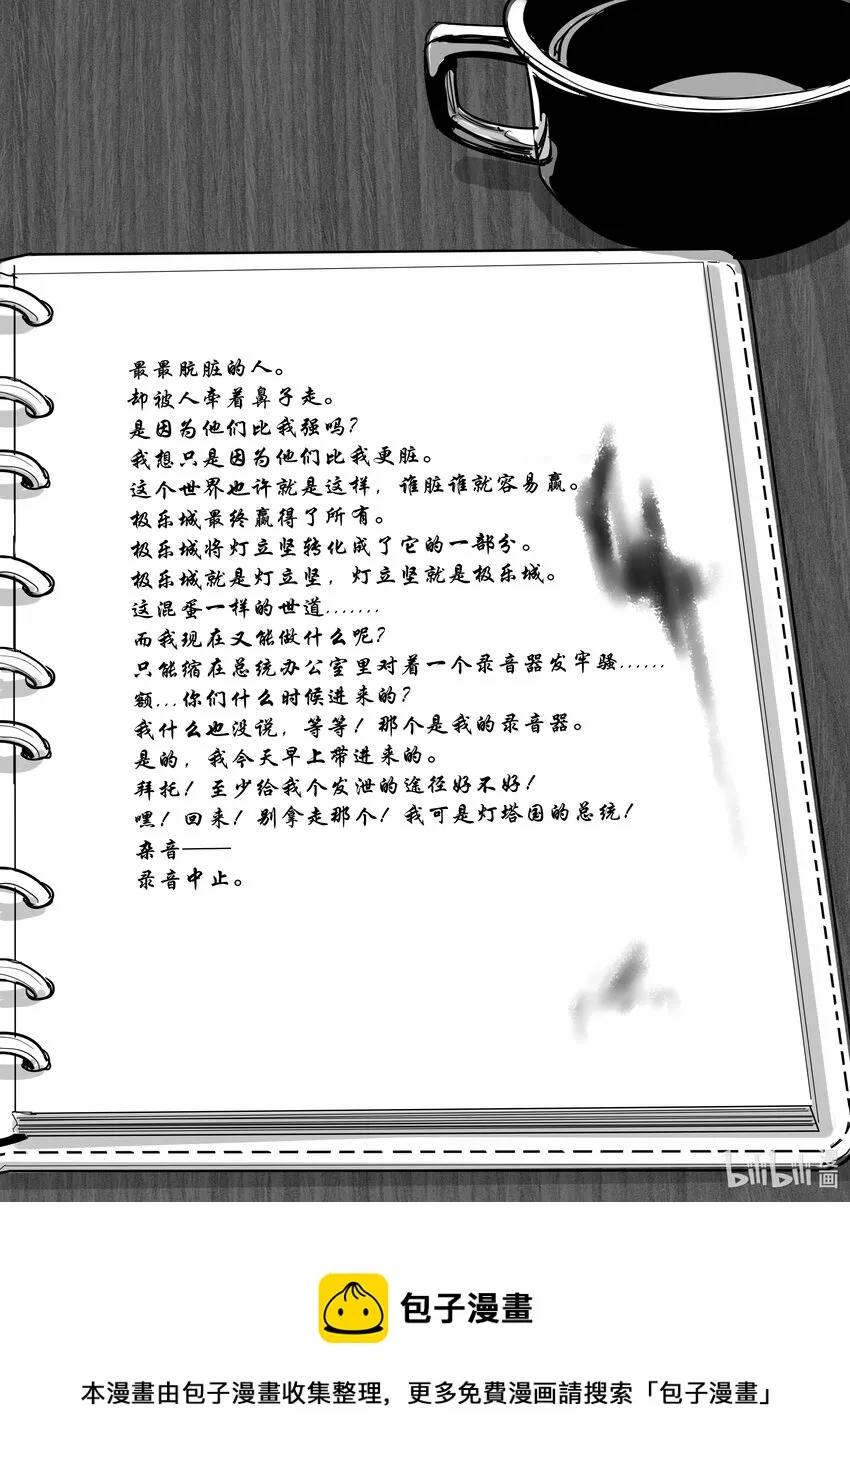 最最肮脏的人。
却被人牵着鼻子走。
是因为他们比我强吗？
我想只是因为他们比我更脏。
这个世界也许就是这样，谁脏谁就容易赢。
极乐城最终赢得了所有。
极乐城将灯立坚转化成了它的一部分。
极乐城就是灯立坚，灯立坚就是极乐城。
这混蛋一样的世道.......
而我现在又能做什么呢？
只能缩在总统办公室里对着一个录音器发牢骚......
额...你们什么时候进来的？
我什么也没说，等等！那个是我的录音器。
是的，我今天早上带进来的。
拜托！至少给我个发泄的途径好不好！
嘿！回来！别拿走那个！我可是灯塔国的总统！
杂音——
录音中止。
bilibili 漫画
包子漫畫
本漫畫由包子漫畫收集整理，更多免費漫画請搜索「包子漫畫」